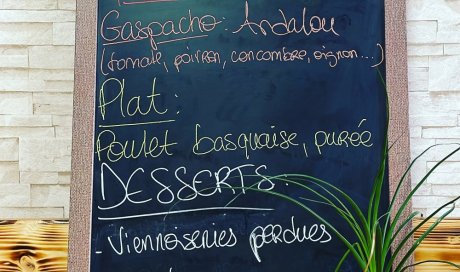 Gaspacho Andalou
(tomate, poivron, concombre, oignon...)
Plat:
Poulet basquaise, purée
DESSERTS:
- Viennoiseries perdues